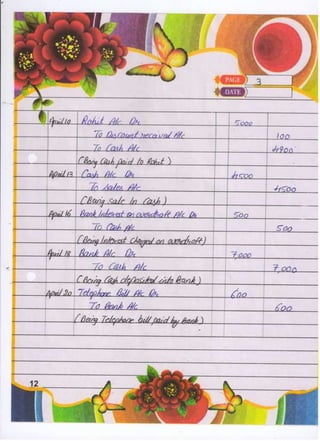 PAGE 3
DATE
April 10 Rohit A/c Dr. 5000
To Discount received A/c 100
To Cash A/c 4900
(Being Cash paid to Rohit)
April 13 Cash A/c Dr. 4500
To Sales A/c 4500
(Being sale in Cash)
April 16 Bank Interest on overdraft A/c Dr 500
To Cash A/c 500
(Being Interest Charged on overdraft)
April 18 Bank A/c Dr. 7,000
To Cash A/c 7,000
(Being Cash deposited into Bank)
April 20 Telephone Bill A/c Dr. 600
To Bank A/c 600
(Being Telephone bill paid by Bank)
12